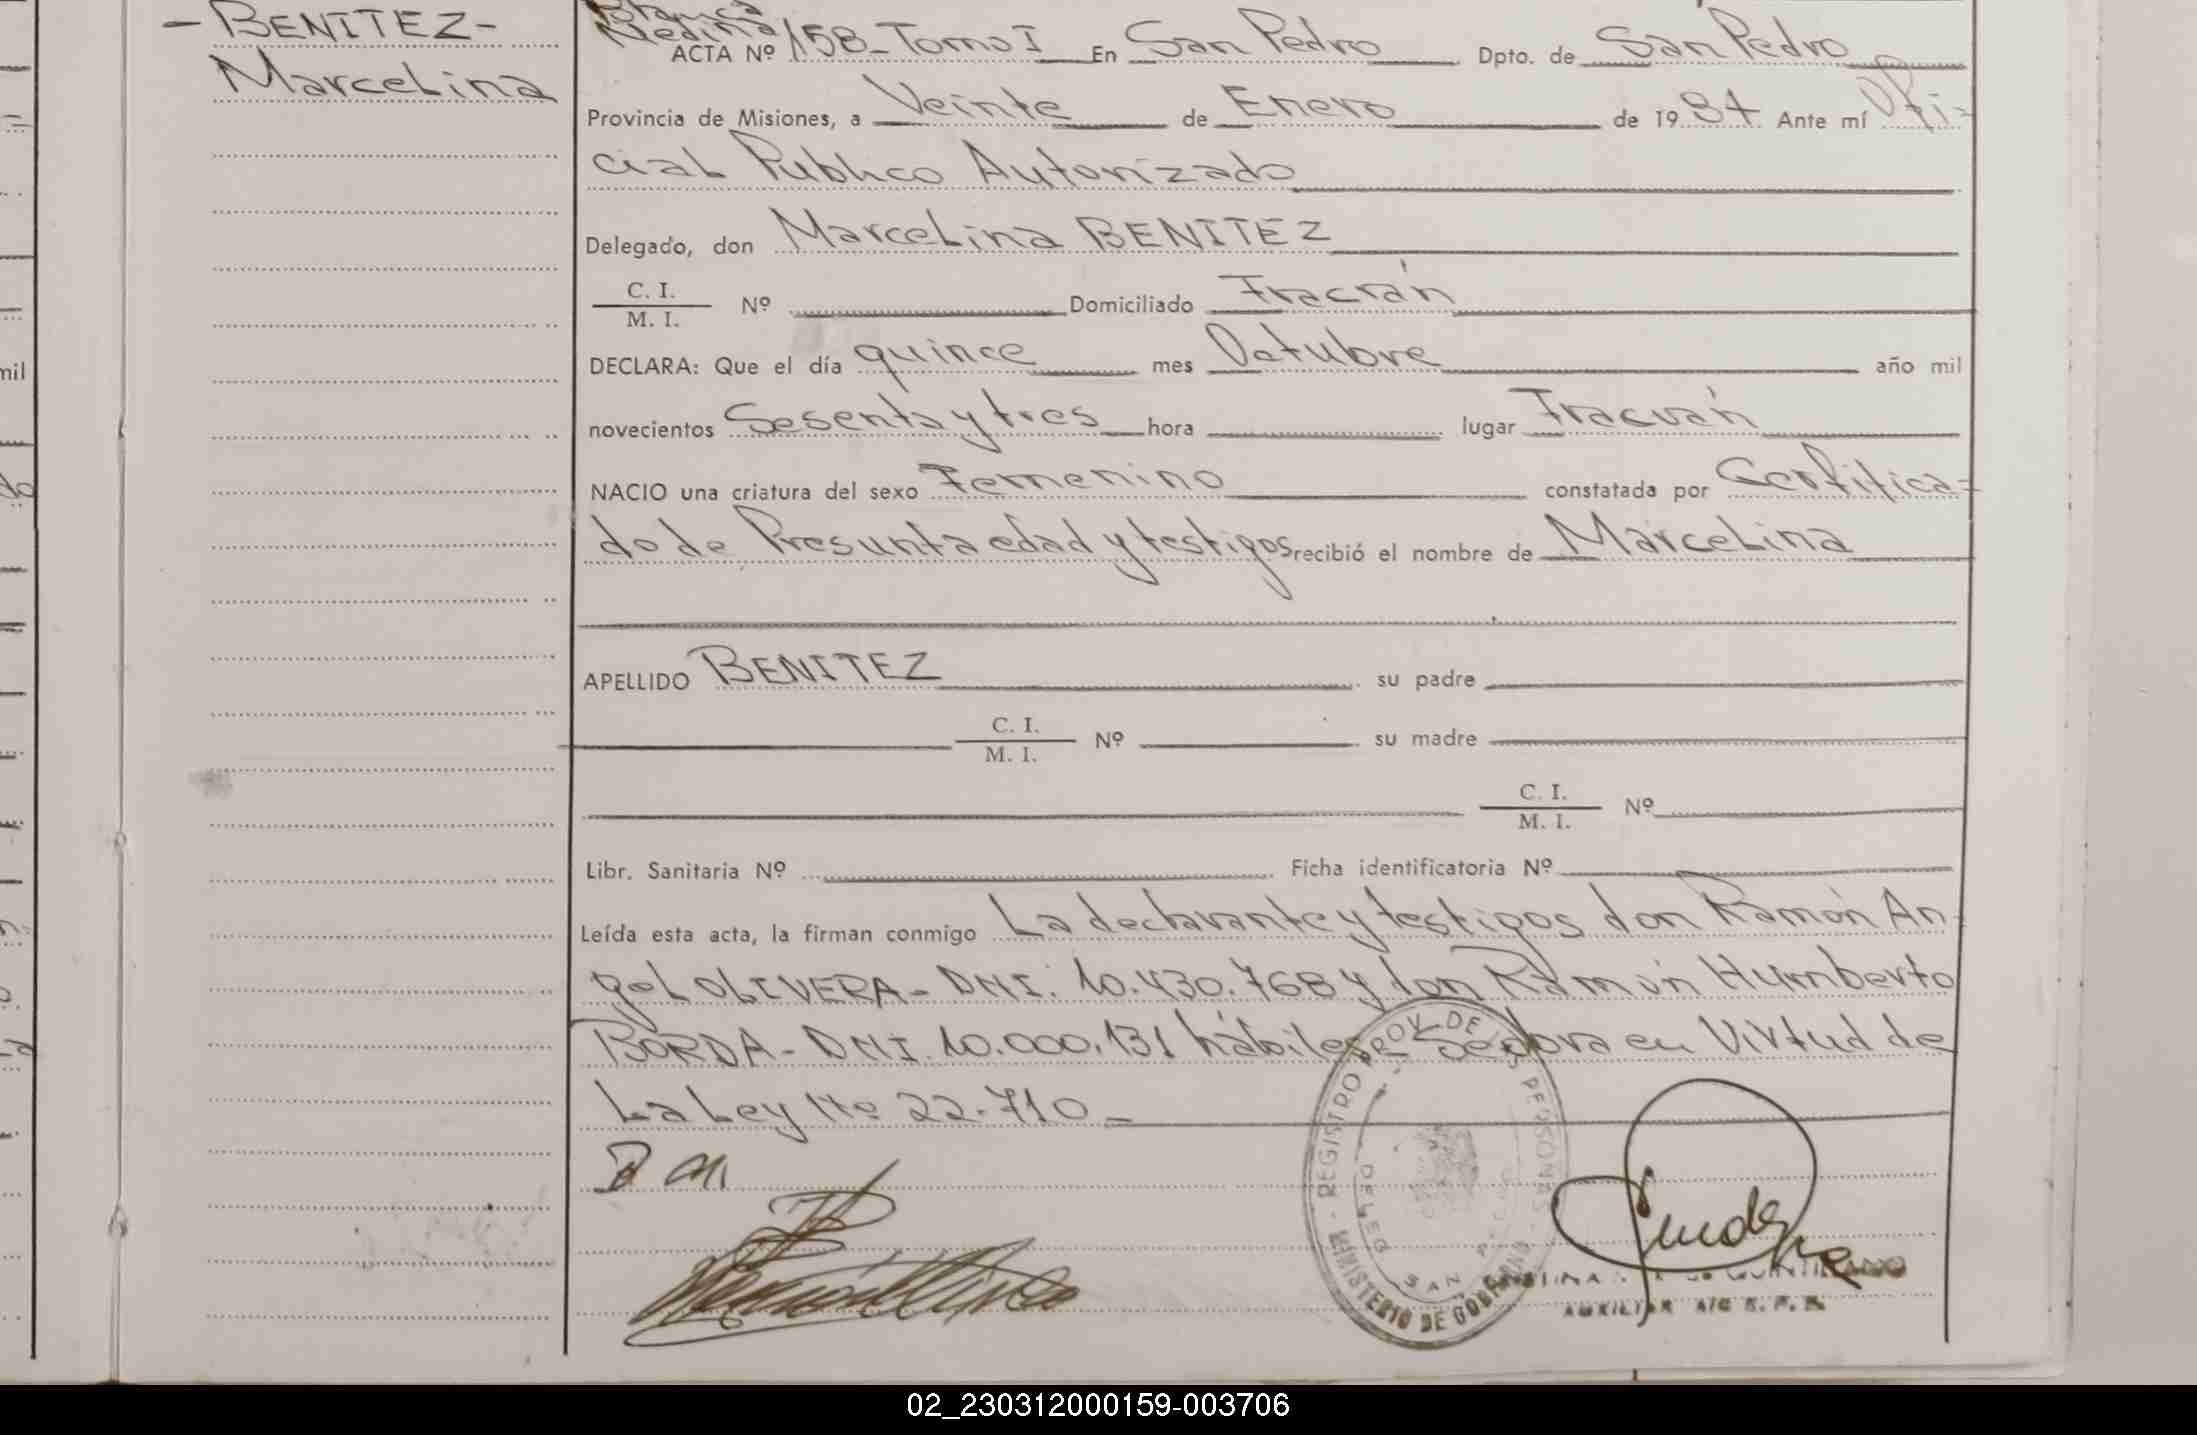 - BENITEZ -
Marcelina
Blanca
Medina
ACTA Nº 158 - Tomo I En San Pedro Dpto. de San Pedro
Provincia de Misiones, a Veinte de Enero de 1984. Ante mí Ofi-
cial Publico Autorizado
Delegado, don Marcelina BENITEZ
C. I.
M. I. Nº Domiciliado Fracrán
DECLARA: Que el día quince mes Octubre año mil
novecientos Sesenta y tres hora lugar Fracrán
NACIO una criatura del sexo Femenino constatada por Certifica-
do de Presunta edad y testigos recibió el nombre de Marcelina
APELLIDO BENITEZ su padre
C. I.
M. I. Nº su madre
C. I.
M. I. Nº
Libr. Sanitaria Nº Ficha identificatoria Nº
Leída esta acta, la firman conmigo La declarante y testigos don Ramón An-
gel OLIVERA - DNI. 10.430.768 y don Ramón Humberto
BORDA - DNI. 10.000.131 hábiles - Se labra en Virtud de
La Ley Nº 22.710 -
B M
REGISTRO PROV. DE LAS PERSONAS
MINISTERIO DE GOBIERNO
DELEG
SAN
AUXILIAR A/C
mil
do
02_230312000159-003706